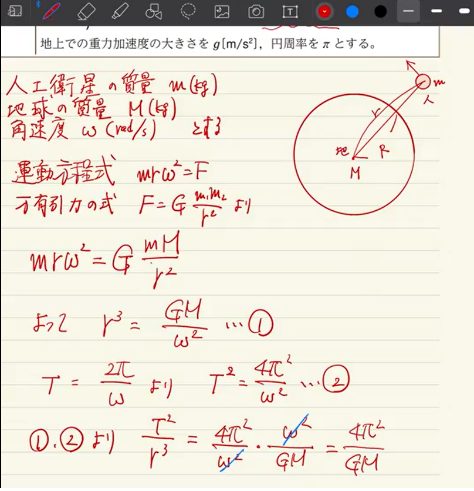 地上での重力加速度の大きさを g[m/s²], 円周率を π とする。
人工衛星の質量 m(kg)
地球の質量 M(kg)
角速度 ω(rad/s) とする
運動方程式 mrω²=F
万有引力の式 F=G m₁m₂/r² より
mrω²=G mM/r²
よって r³ = GM/ω² …①
T = 2π/ω より T²=4π²/ω² …②
①.②より T²/r³ = 4π²/ω² · ω²/GM = 4π²/GM
m
人
r
地
R
M